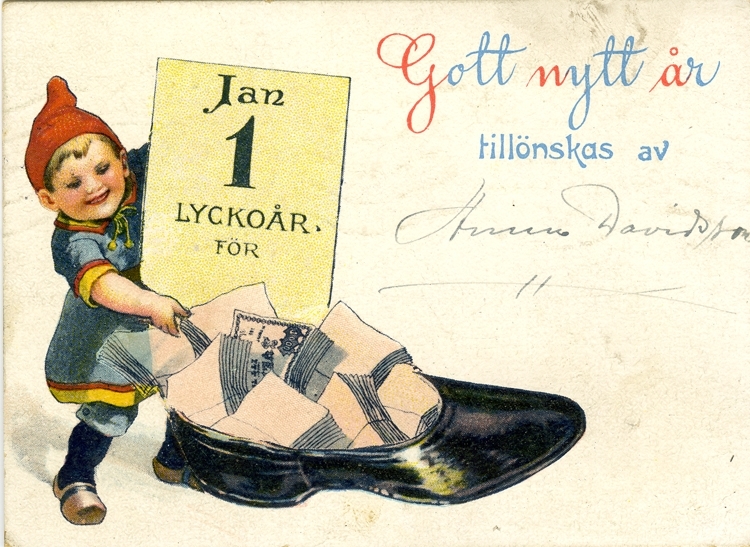 Jan
1
LYCKOÅR.
FÖR
Gott nytt år
tillönskas av
Davidsson